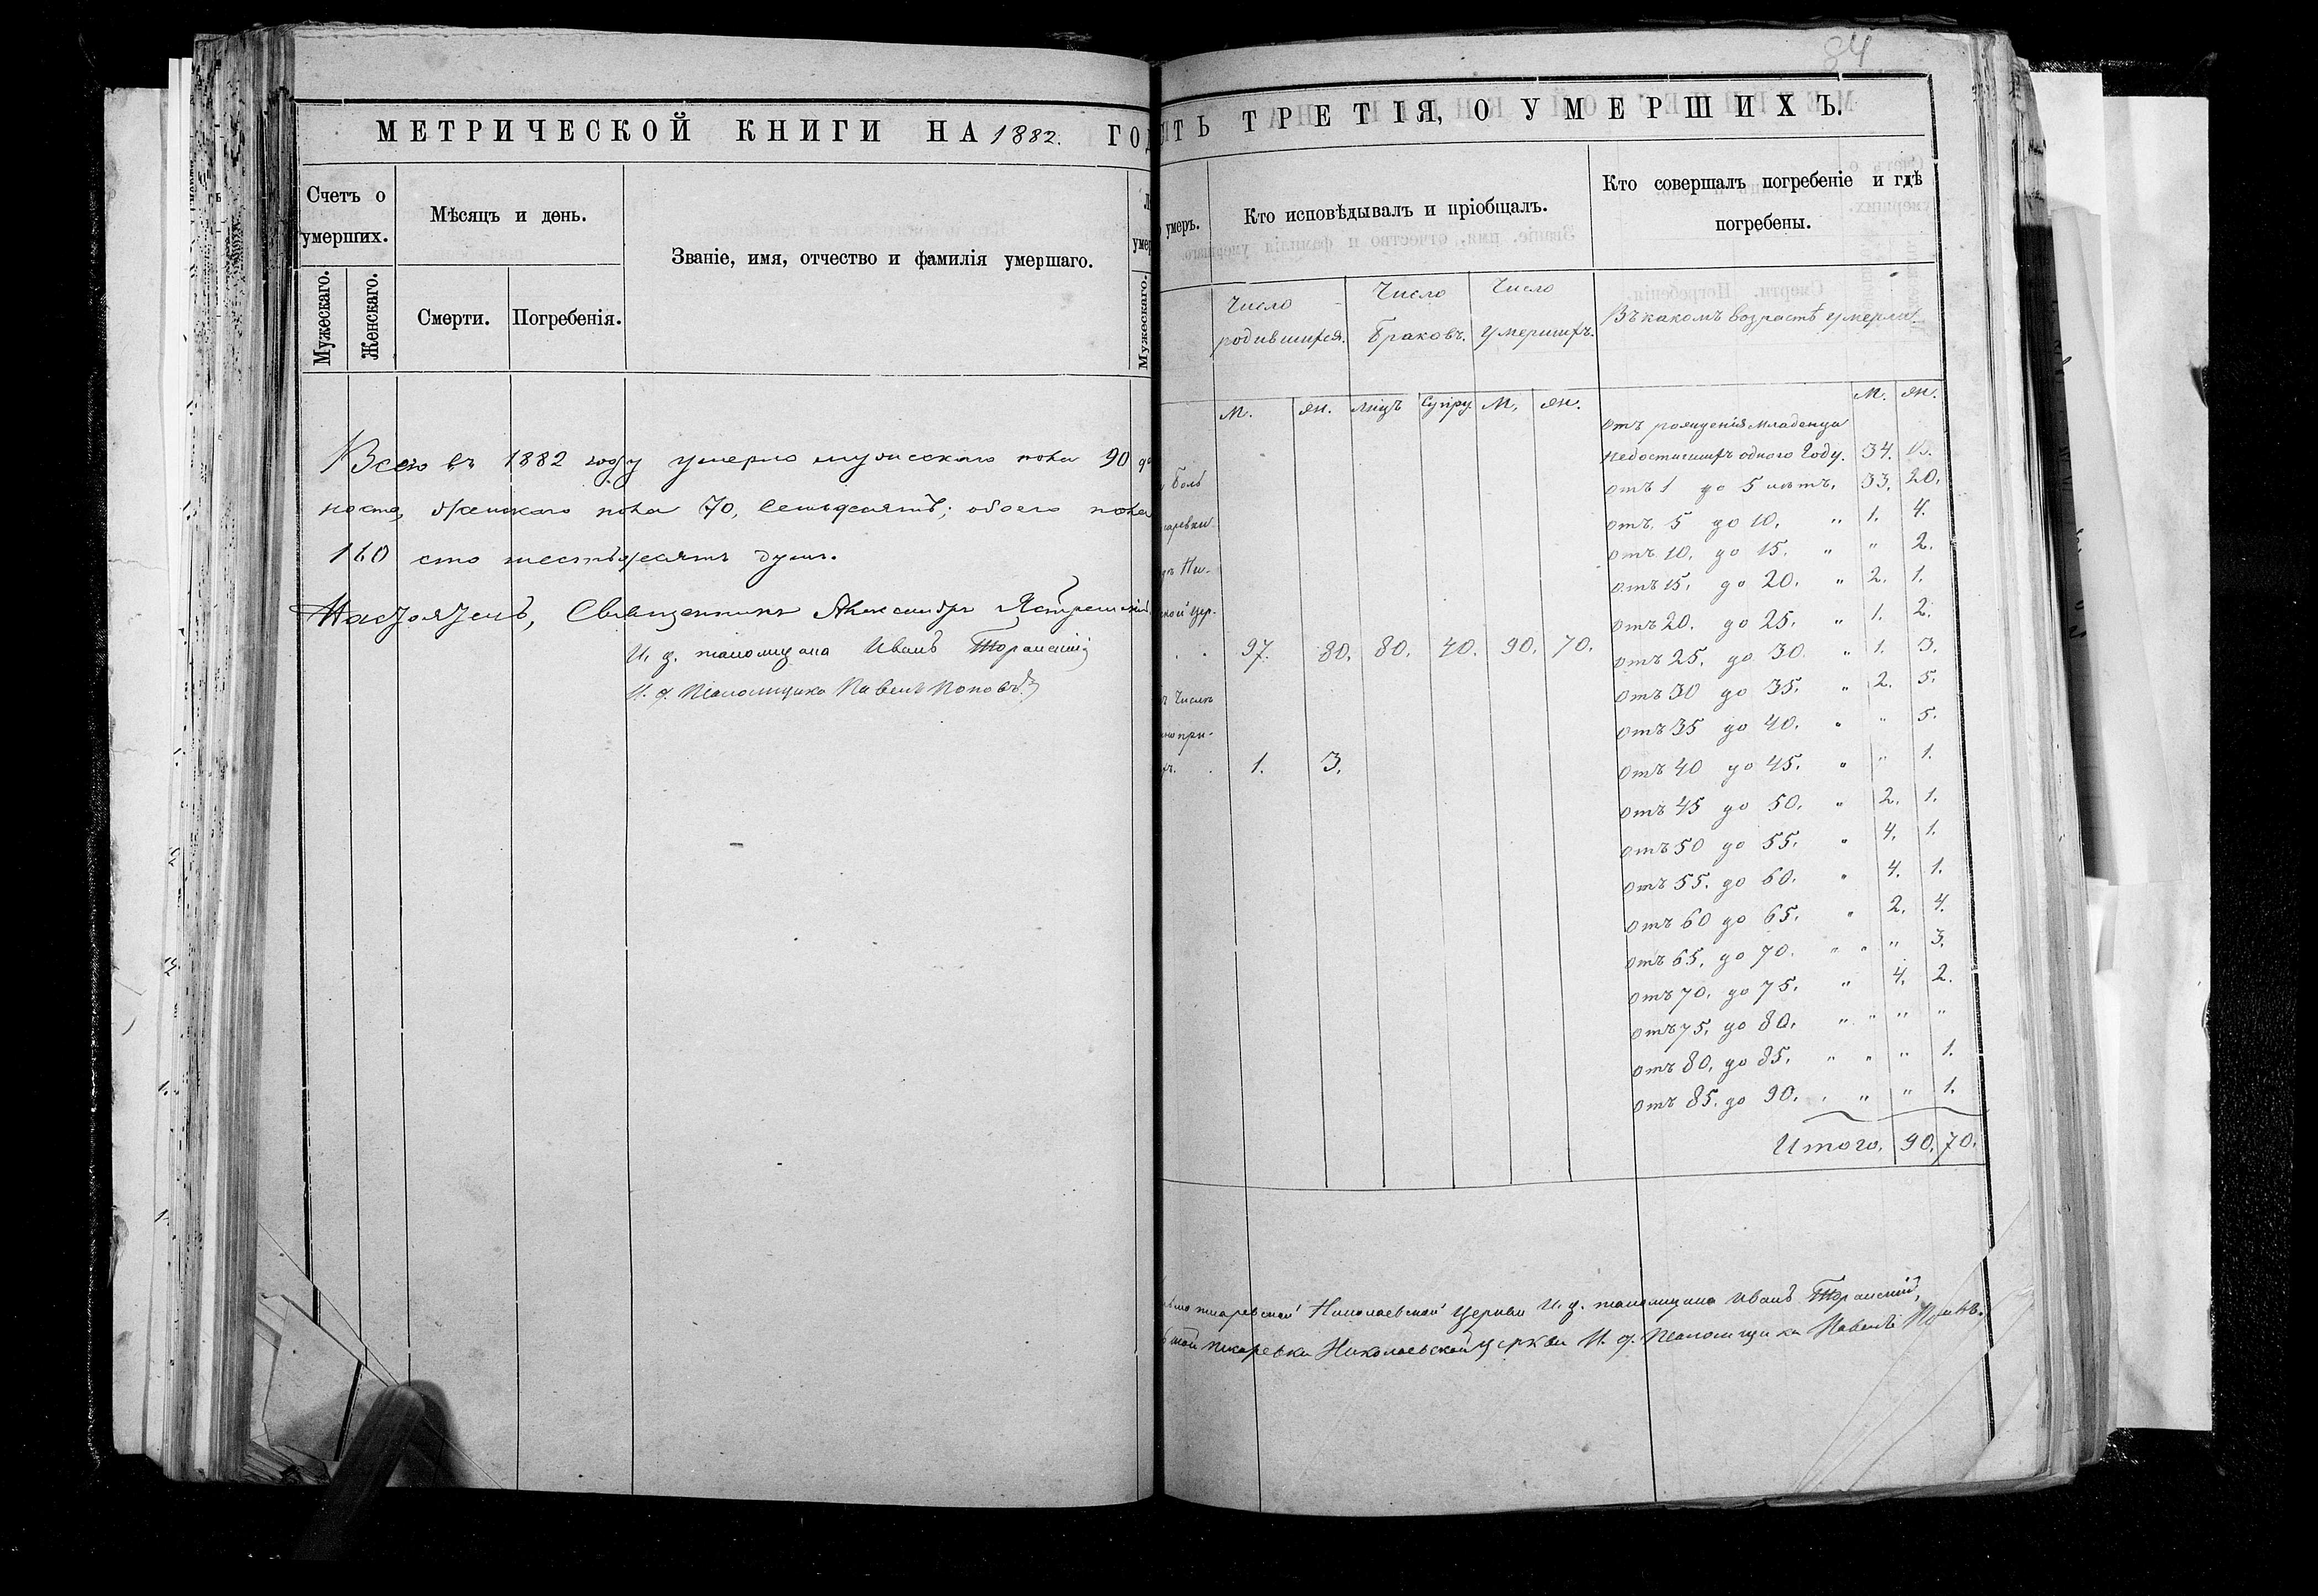 84
МЕТРИЧЕСКОЙ КНИГИ НА 1882. ГОД
Счетъ о умерших.
Мѣсяцъ и день.
Званіе, имя, отчество и фамилія умершаго.
Мужескаго.
Женскаго.
Смерти.
Погребенія.
Мужескаго.
Всего въ 1882 году умерло мужескаго пола 90 де
носто, женскаго пола 70, семьдесятъ; обоего пола
160 сто шестьдесятъ душъ.
Настоятель, Священникъ Александръ
И. д. псаломщика Иванъ
И. д. Псаломщика Павелъ Поповъ
ТЬ ТРЕТІЯ, О УМЕРШИХЪ.
умеръ.
Кто исповѣдывалъ и пріобщалъ.
Кто совершалъ погребеніе и гдѣ
погребены.
Число родившихся.
Число Браковъ.
Число умершихъ.
Въ какомъ возрастѣ умерли.
М. Ж. лицъ Супру М. Ж.
М. Ж.
отъ рожденія младенца
недостигшихъ одного Году. 34. 13.
отъ 1 до 5 лѣтъ. 33. 20.
отъ 5 до 10. " 1. 4.
отъ 10. до 15. " " 2.
отъ 15. до 20. " 2. 1.
отъ 20. до 25. " 1. 2.
97. 80. 80. 40. 90. 70.
отъ 25. до 30. " 1. 3.
отъ 30 до 35. " 2. 5.
отъ 35 до 40. " " 5.
1. 3.
отъ 40 до 45. " " 1.
отъ 45 до 50. " 2. 1.
отъ 50 до 55. " 4. 1.
отъ 55. до 60. " 4. 1.
отъ 60 до 65. " 2. 4.
отъ 65. до 70. " " " 3.
отъ 70. до 75. " 4. 2.
отъ 75. до 80. " " " "
отъ 80. до 85. " " " 1.
отъ 85. до 90. " " " 1.
Итого. 90. 70.
Николаевской Церкви И. д. псаломщика Иванъ
Николаевской церкви И. д. Псаломщика Павелъ Поповъ.